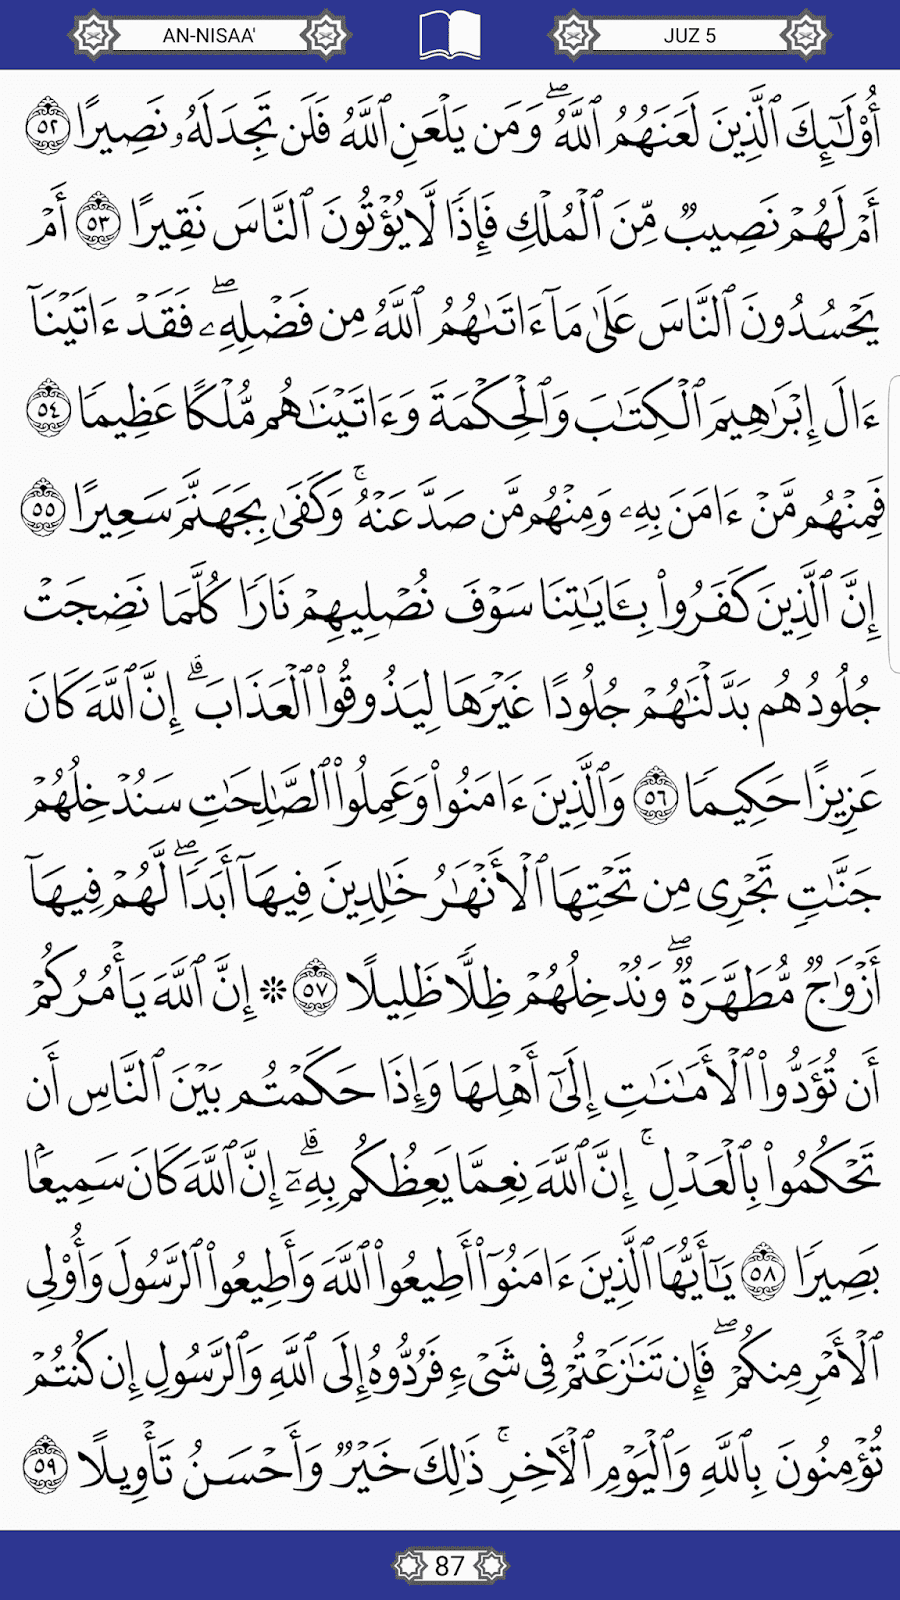 AN-NISAA' JUZ 5
أُوْلَـٰٓئِكَ ٱلَّذِينَ لَعَنَهُمُ ٱللَّهُۖ وَمَن يَلْعَنِ ٱللَّهُ فَلَن تَجِدَ لَهُۥ نَصِيرًا ٥٢
أَمْ لَهُمْ نَصِيبٌ مِّنَ ٱلْمُلْكِ فَإِذًا لَّا يُؤْتُونَ ٱلنَّاسَ نَقِيرًا ٥٣ أَمْ
يَحْسُدُونَ ٱلنَّاسَ عَلَىٰ مَآ ءَاتَىٰهُمُ ٱللَّهُ مِن فَضْلِهِۦۖ فَقَدْ ءَاتَيْنَآ
ءَالَ إِبْرَٰهِيمَ ٱلْكِتَـٰبَ وَٱلْحِكْمَةَ وَءَاتَيْنَـٰهُم مُّلْكًا عَظِيمًا ٥٤
فَمِنْهُم مَّنْ ءَامَنَ بِهِۦ وَمِنْهُم مَّن صَدَّ عَنْهُۚ وَكَفَىٰ بِجَهَنَّمَ سَعِيرًا ٥٥
إِنَّ ٱلَّذِينَ كَفَرُوا۟ بِـَٔايَـٰتِنَا سَوْفَ نُصْلِيهِمْ نَارًا كُلَّمَا نَضِجَتْ
جُلُودُهُم بَدَّلْنَـٰهُمْ جُلُودًا غَيْرَهَا لِيَذُوقُوا۟ ٱلْعَذَابَۗ إِنَّ ٱللَّهَ كَانَ
عَزِيزًا حَكِيمًا ٥٦ وَٱلَّذِينَ ءَامَنُوا۟ وَعَمِلُوا۟ ٱلصَّـٰلِحَـٰتِ سَنُدْخِلُهُمْ
جَنَّـٰتٍ تَجْرِى مِن تَحْتِهَا ٱلْأَنْهَـٰرُ خَـٰلِدِينَ فِيهَآ أَبَدًاۖ لَّهُمْ فِيهَآ
أَزْوَٰجٌ مُّطَهَّرَةٌۖ وَنُدْخِلُهُمْ ظِلًّا ظَلِيلًا ٥٧ ۞ إِنَّ ٱللَّهَ يَأْمُرُكُمْ
أَن تُؤَدُّوا۟ ٱلْأَمَـٰنَـٰتِ إِلَىٰٓ أَهْلِهَا وَإِذَا حَكَمْتُم بَيْنَ ٱلنَّاسِ أَن
تَحْكُمُوا۟ بِٱلْعَدْلِۚ إِنَّ ٱللَّهَ نِعِمَّا يَعِظُكُم بِهِۦٓۗ إِنَّ ٱللَّهَ كَانَ سَمِيعًۢا
بَصِيرًا ٥٨ يَـٰٓأَيُّهَا ٱلَّذِينَ ءَامَنُوٓا۟ أَطِيعُوا۟ ٱللَّهَ وَأَطِيعُوا۟ ٱلرَّسُولَ وَأُو۟لِى
ٱلْأَمْرِ مِنكُمْۖ فَإِن تَنَـٰزَعْتُمْ فِى شَىْءٍ فَرُدُّوهُ إِلَى ٱللَّهِ وَٱلرَّسُولِ إِن كُنتُمْ
تُؤْمِنُونَ بِٱللَّهِ وَٱلْيَوْمِ ٱلْـَٔاخِرِۚ ذَٰلِكَ خَيْرٌ وَأَحْسَنُ تَأْوِيلًا ٥٩
87